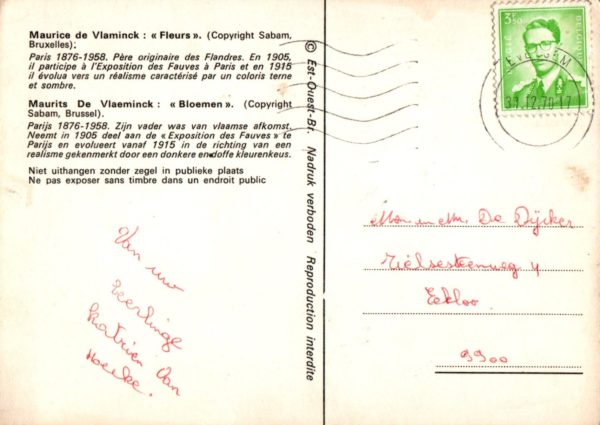 Maurice de Vlaminck : « Fleurs ». (Copyright Sabam,
Bruxelles);
Paris 1876-1958. Père originaire des Flandres. En 1905,
il participe à l'Exposition des Fauves à Paris et en 1915
il évolua vers un réalisme caractérisé par un coloris terne
et sombre.
Maurits De Vlaeminck : « Bloemen ». (Copyright
Sabam, Brussel).
Parijs 1876-1958. Zijn vader was van vlaamse afkomst.
Neemt in 1905 deel aan de « Exposition des Fauves » te
Parijs en evolueert vanaf 1915 in de richting van een
realisme gekenmerkt door een donkere en doffe kleurenkeus.
Niet uithangen zonder zegel in publieke plaats
Ne pas exposer sans timbre dans un endroit public
Van uw
Leerlinge
Katrien Van
Hoecke.
© Est-Ouest-Br. Nadruk verboden Reproduction interdite
3F50
BELGIQUE
BELGIE
EVERGEM
De Dijcker
Tieltsesteenweg 4
Eekloo
9900